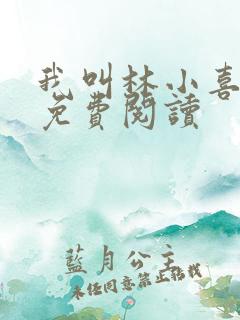 我叫林小喜
免費閱讀
藍月公主
未經同意禁止轉載